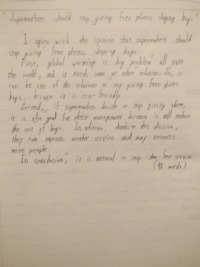 "Supermarkets should stop giving free plastic shopping bags"
I agree with the opinion that supermarkets should
stop giving free plastic shopping bags.
First, global warming is big problem all over
the world, and it needs some of solution. So, it
can be one of the solution to stop giving free plastic
bags, because it is eco-friendly.
Second, if supermarkets decide to stop giving them,
it is also good for their management because it will reduce
the cost of bags. In addition, thanks to this decision,
they can improve another service and may attract
more people.
In conclusion, it is natural to stop free service
words)